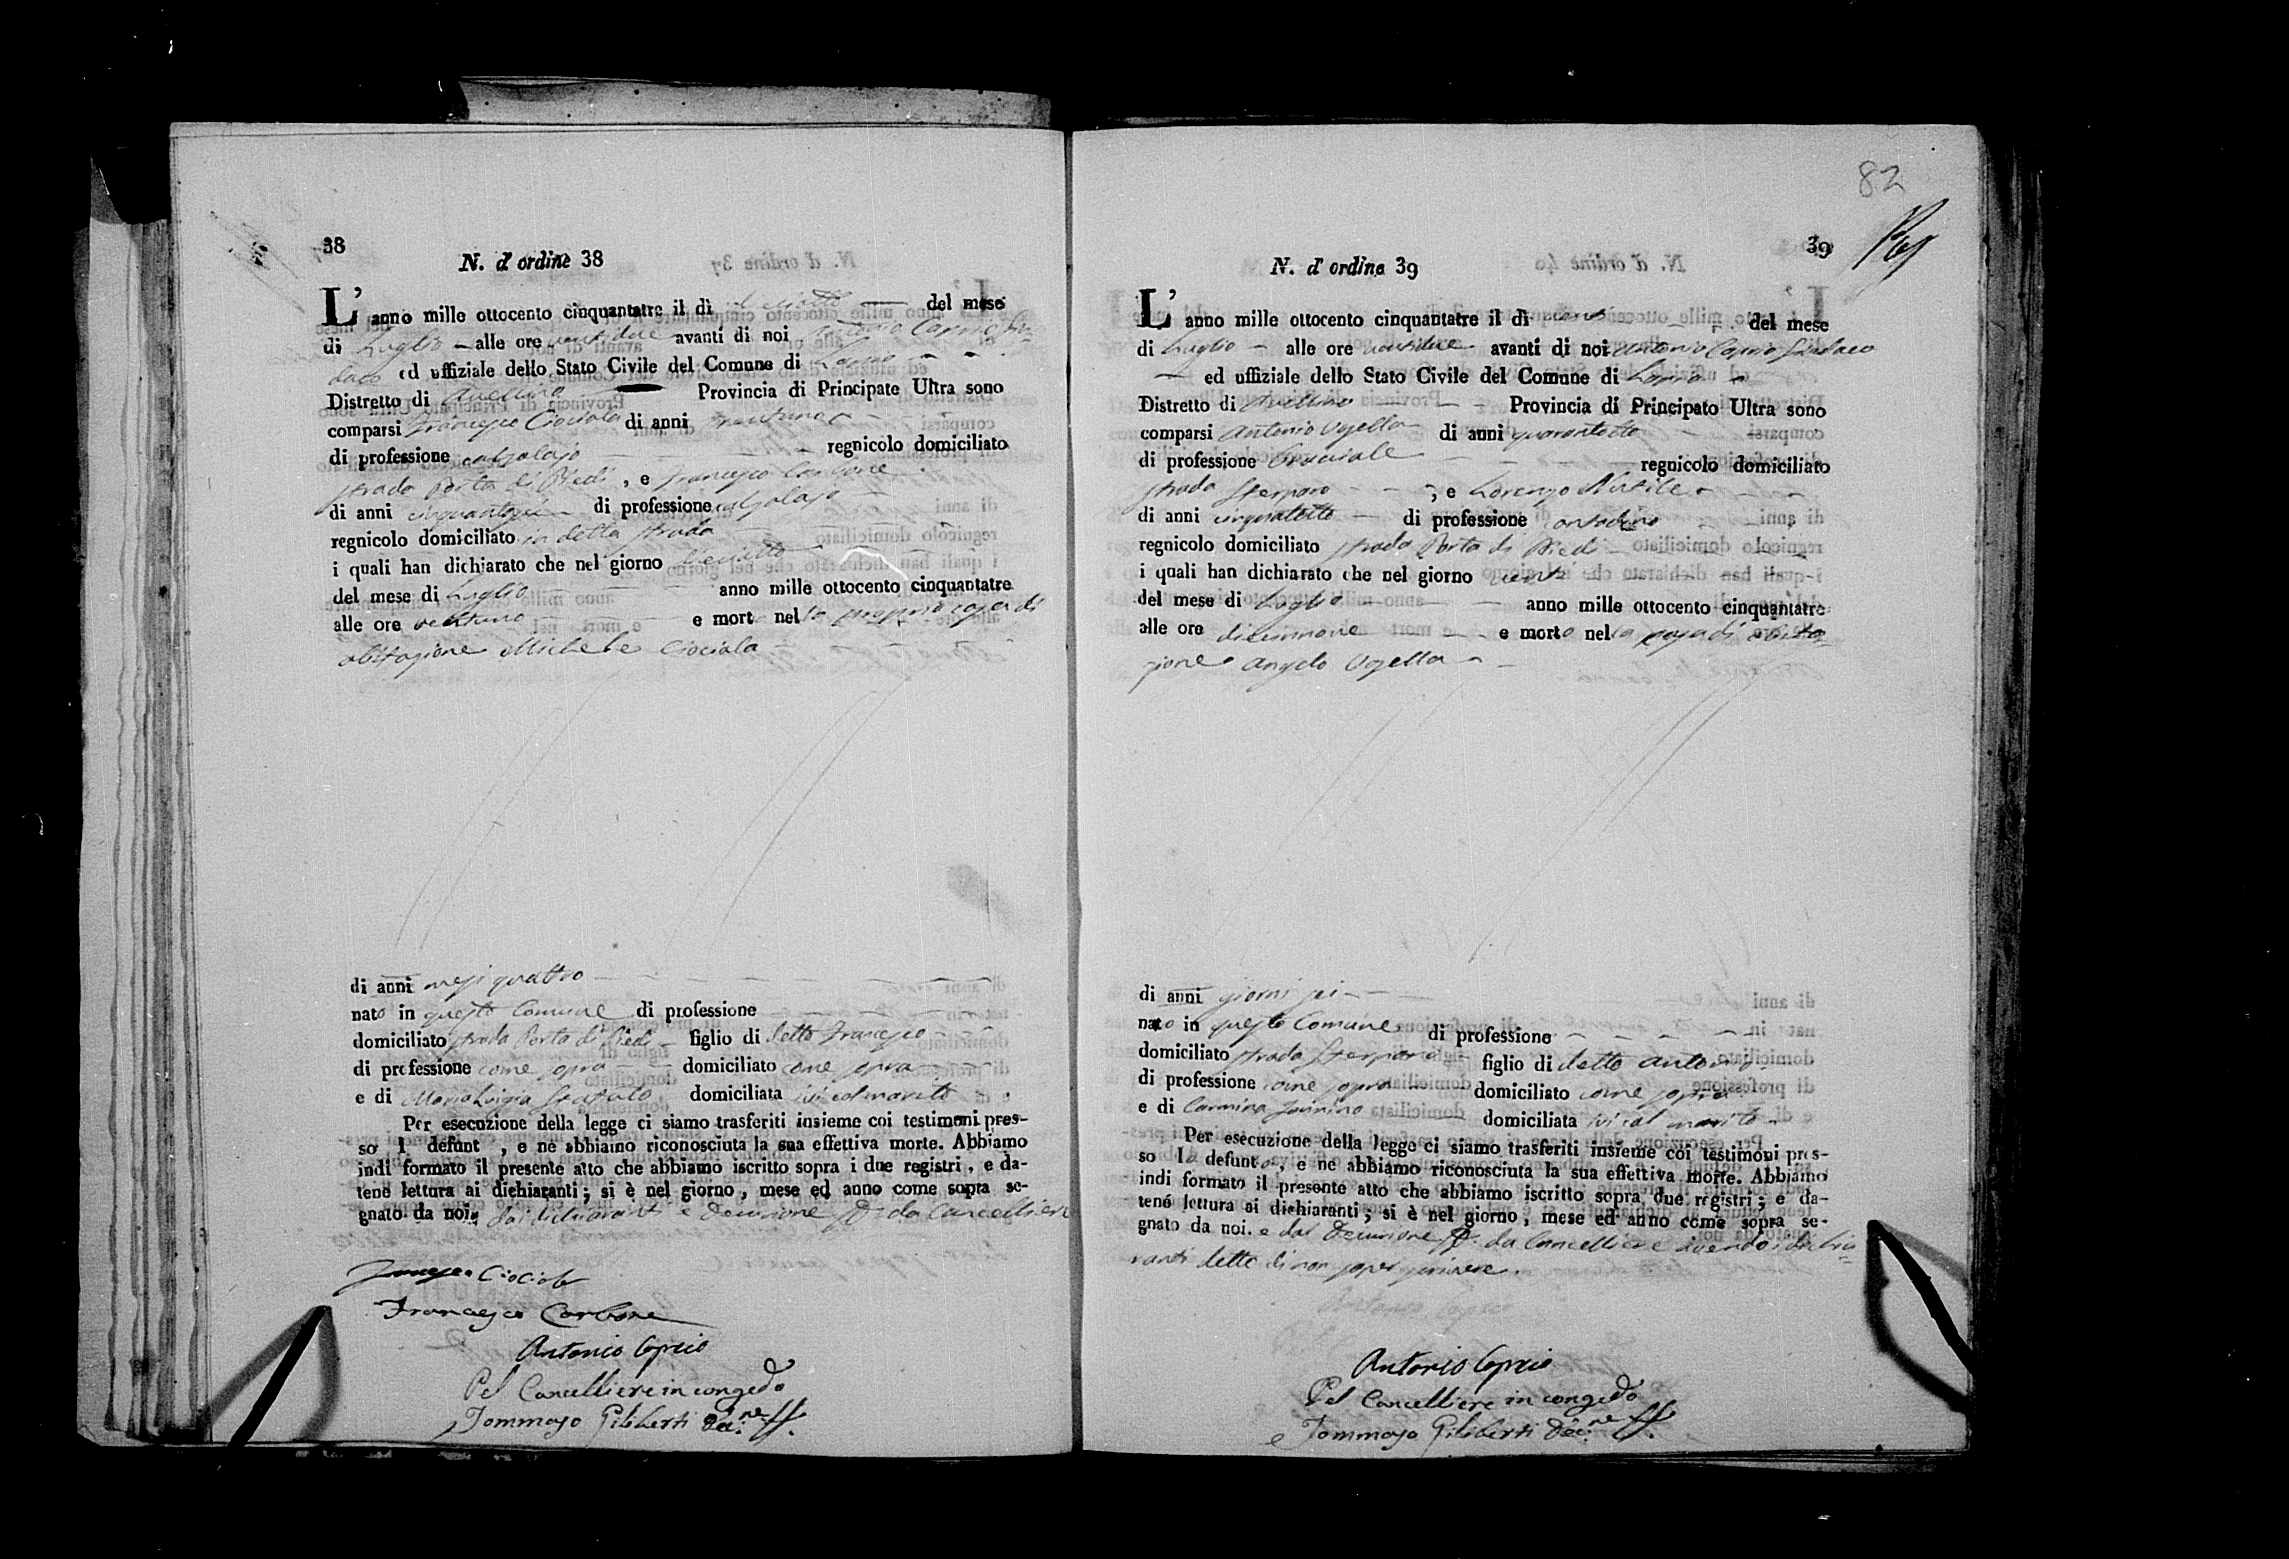 38
N. d' ordine 38
L' anno mille ottocento cinquantatre il dì diciotto del mese
di Luglio alle ore ventidue avanti di noi Antonio Caprio Sin-
daco ed uffiziale dello Stato Civile del Comune di
Distretto di Avellino Provincia di Principato Ultra sono
comparsi Francesco Ciociola di anni trentuno
di professione calzolajo regnicolo domiciliato
strada Porta di Piedi, e Francesco Carbone
di anni di professione calzolajo
regnicolo domiciliato in detta strada
i quali han dichiarato che nel giorno diciotto
del mese di Luglio anno mille ottocento cinquantatre
alle ore ventuno e morto nella propria casa di
abitazione Michele Ciociola
di anni mesi quattro
nato in questo Comune di professione
domiciliato strada Porta di Piedi figlio di detto Francesco
di professione come sopra domiciliato come sopra
e di Maria Luigia domiciliata ivi col marito
Per esecuzione della legge ci siamo trasferiti insieme coi testimoni pres-
so l defunt , e ne abbiamo riconosciuta la sua effettiva morte. Abbiamo
indi formato il presente atto che abbiamo iscritto sopra i due registri, e da-
tene lettura ai dichiaranti; si è nel giorno, mese ed anno come sopra se-
gnato da noi, dai dichiaranti e Decurione ff. da Cancelliere
Francesco Ciociola
Francesco Carbone
Antonio Caprio
Pel Cancelliere in congedo
Tommaso Giliberti Dec.ne ff.
82
39
N. d' ordine 39
L' anno mille ottocento cinquantatre il dì venti del mese
di Luglio alle ore ventidue avanti di noi Antonio Caprio Sindaco
ed uffiziale dello Stato Civile del Comune di
Distretto di Avellino Provincia di Principato Ultra sono
comparsi Antonio Ugella di anni quarantotto
di professione bracciale regnicolo domiciliato
strada Sterparo, e Lorenzo Nutile
di anni cinquantotto di professione contadino
regnicolo domiciliato strada Porta di Piedi
i quali han dichiarato che nel giorno venti
del mese di Luglio anno mille ottocento cinquantatre
alle ore diciannove e morta nella casa di abita-
zione Angela Ugella
di anni giorni sei
nato in questo Comune di professione
domiciliato strada Sterparo figlio di detto Antonio
di professione come sopra domiciliato come sopra
e di Carmina domiciliata ivi col marito
Per esecuzione della legge ci siamo trasferiti insieme coi testimoni pres-
so la defunta, e ne abbiamo riconosciuta la sua effettiva morte. Abbiamo
indi formato il presente atto che abbiamo iscritto sopra due registri; e da-
tené lettura ai dichiaranti; si è nel giorno, mese ed anno come sopra se-
gnato da noi. e dal Decurione ff. da Cancelliere avendo i dichia-
ranti detto di non saper scrivere.
Antonio Caprio
Pel Cancelliere in congedo
Tommaso Giliberti Dec.ne ff.